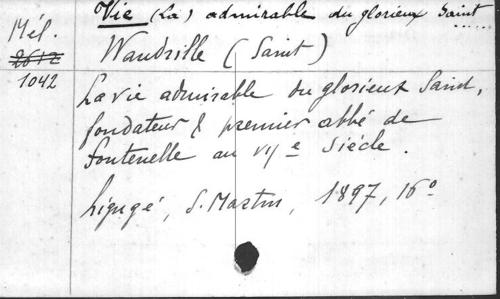 Vie (La) admirable du glorieux Saint .....
Mél.
2612
1042
Wandrille (Saint)
La vie admirable du glorieux Saint,
fondateur & premier abbé de
Fontenelle au VIIe siécle.
Ligugé, S. Martin, 1897, 16°